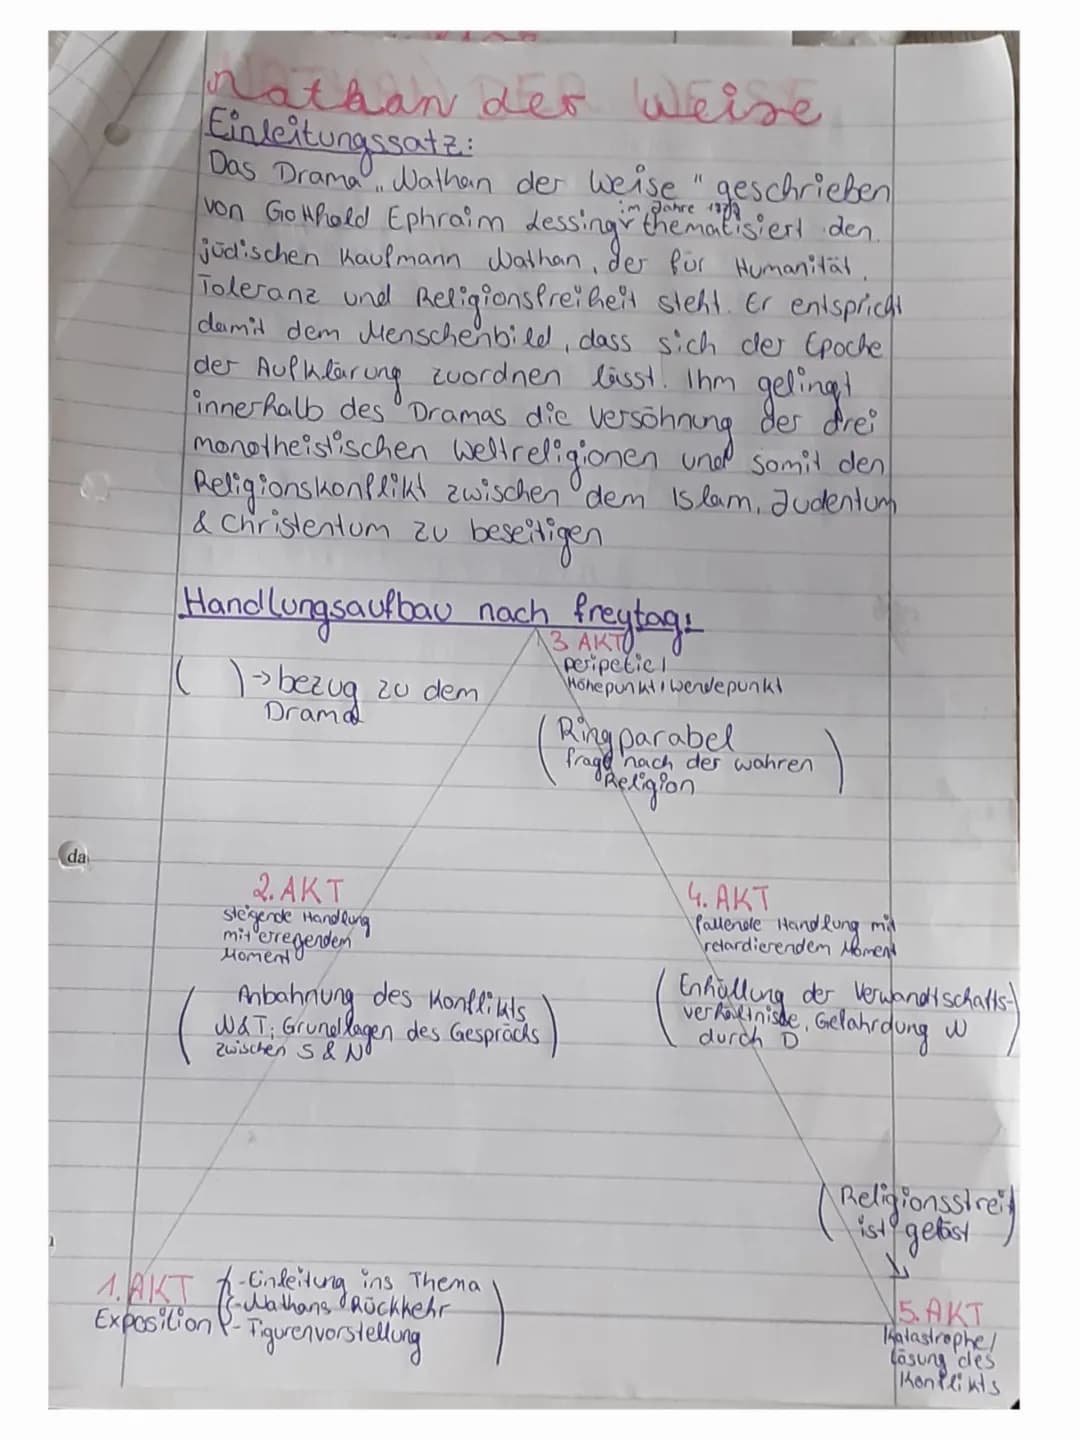 Nathan der Weise
Einleitungssatz:
Das Drama „Nathan der Weise" geschrieben
im Jahre
von Gotthold Ephraim Lessing thematisiert den
jüdischen Kaufmann Nathan, der für Humanität,
Toleranz und Religionsfreiheit steht. Er entspricht
damit dem Menschenbild, dass sich der Epoche
der Aufklärung zuordnen lässt. Ihm gelingt
innerhalb des Dramas die Versöhnung der drei
monotheistischen Weltreligionen und somit den
Religionskonflikt zwischen dem Islam, Judentum
& Christentum zu beseitigen
Handlungsaufbau nach freytag:
3 AKT
peripetie/
Höhepunkt/wendepunkt
( ) → bezug zu dem
Drama
(Ringparabel
frage nach der wahren
Religion)
da
2. AKT
steigende Handlung
mit erregendem
Moment
(Anbahnung des Konflikts
N&T; Grundlagen des Gesprächs
zwischen S & N)
4. AKT
fallende Handlung mit
retardierendem Moment
(Enhüllung der Verwandtschafts-
verhältnisse, Gefahrdung N
durch D)
(Religionsstreit
ist gelöst)
1. AKT
Exposition
(-Einleitung ins Thema
-Nathans Rückkehr
-Figurenvorstellung)
5. AKT
Katastrophe/
lösung des
Konflikts